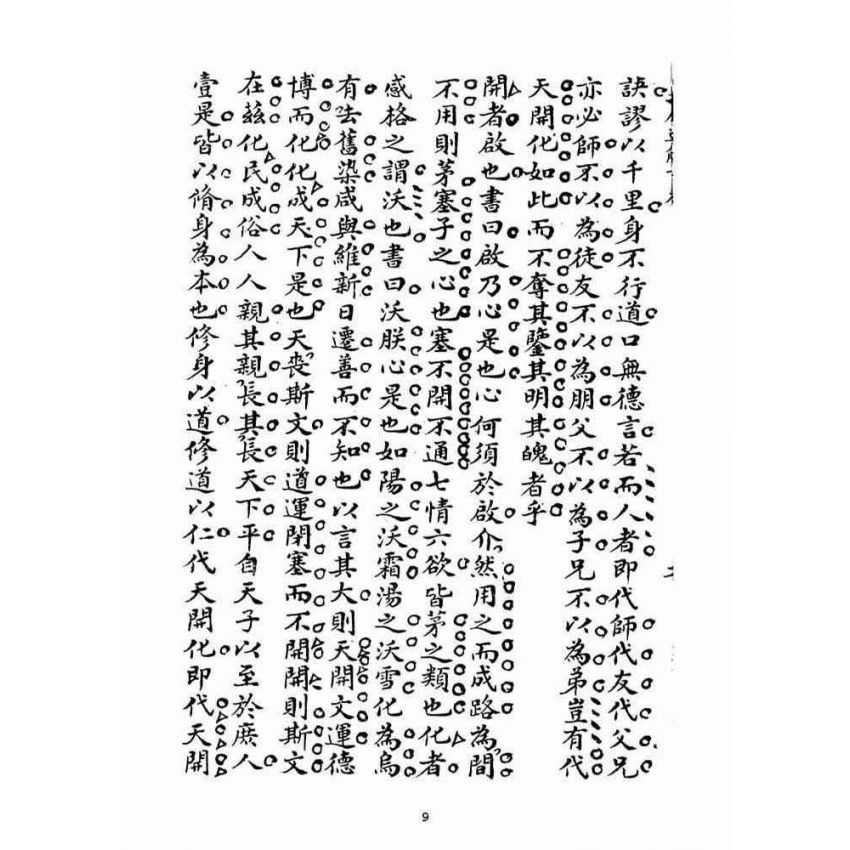 訣謬以千里身不行道口無德言若而人者即代師代友代父兄
亦必師不以為徒友不以為朋父不以為子兄不以為弟豈有代
天開化如此而不奪其鑒其明其魄者乎
開者啟也書曰啟乃心是也心何須於啟介然用之而成路為間
不用則茅塞子之心也塞不開不通七情六欲皆茅之類也化者
感格之謂沃也書曰沃朕心是也如陽之沃霜湯之沃雪化為烏
有去舊染咸與維新日遷善而不知也以言其大則天開文運德
博而化化成天下是也天喪斯文則道運閉塞而不開開則斯文
在茲化民成俗人人親其親長其長天下平自天子以至於庶人
壹是皆以脩身為本也修身以道修道以仁代天開化即代天開
9